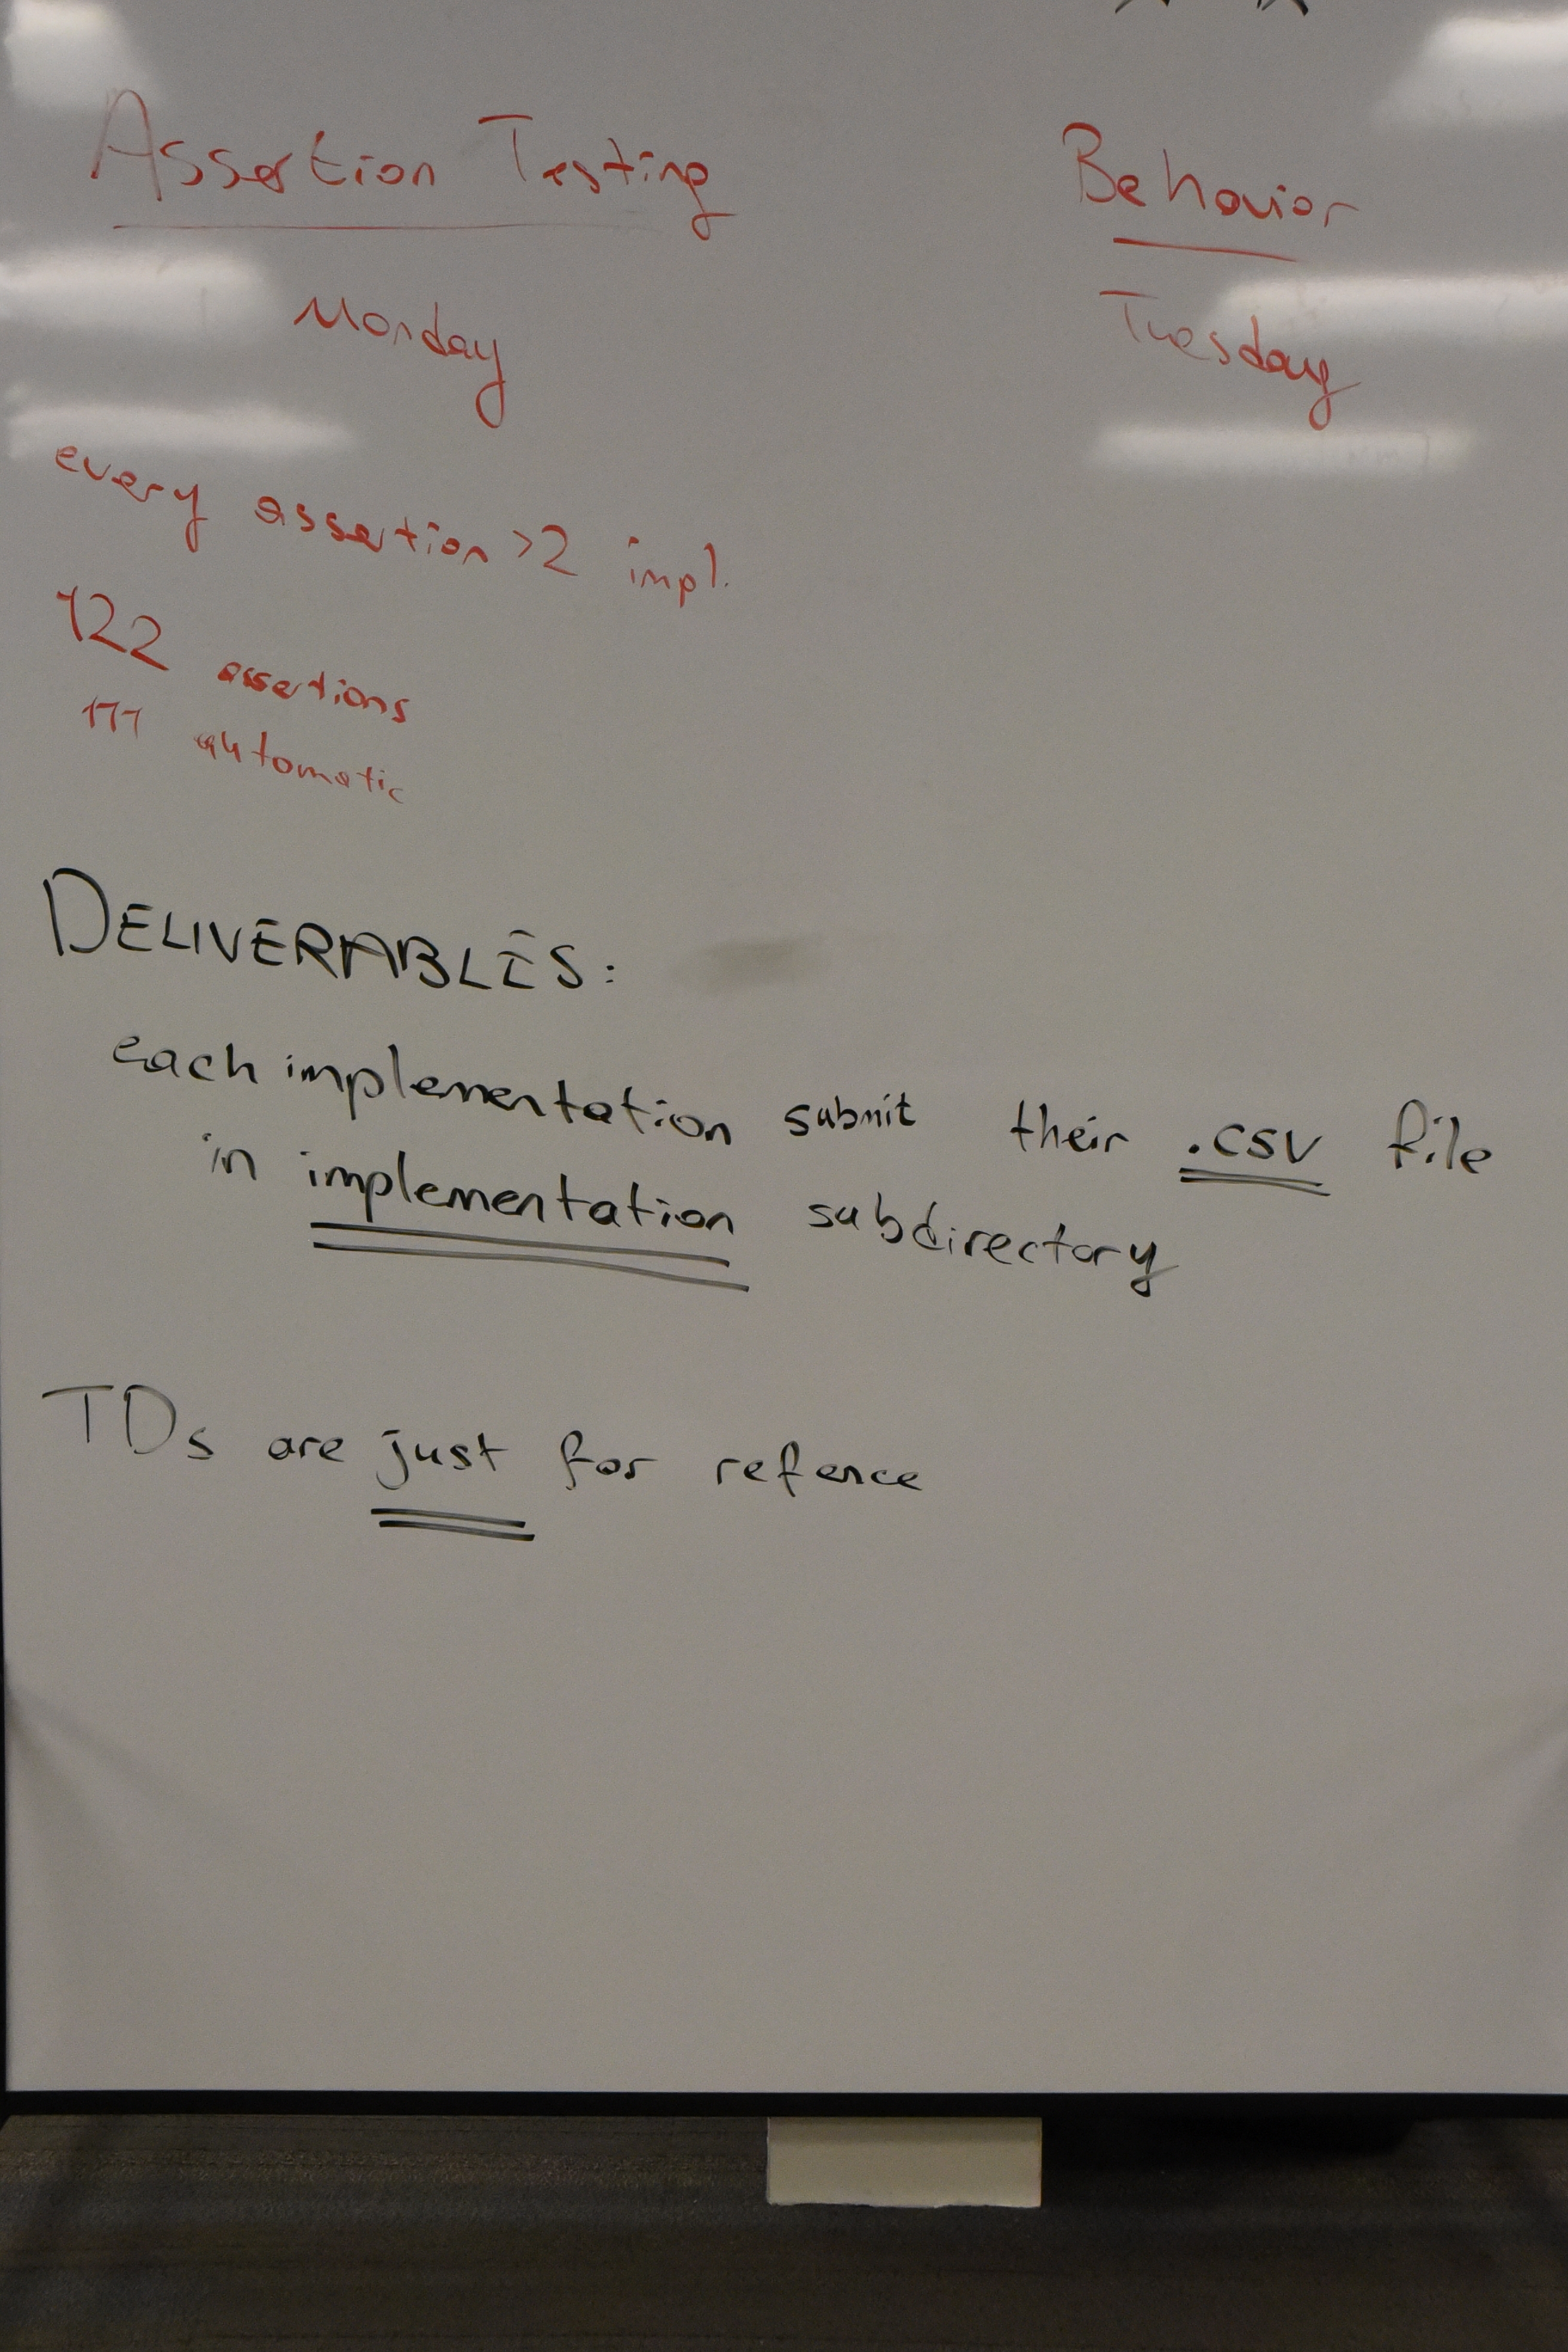 Assertion Testing
Behavior
Monday
Tuesday
every assertion >2 impl.
122 assertions
111 automatic
DELIVERABLES:
each implementation submit their .csv file
in implementation subdirectory
TDs are just for refence